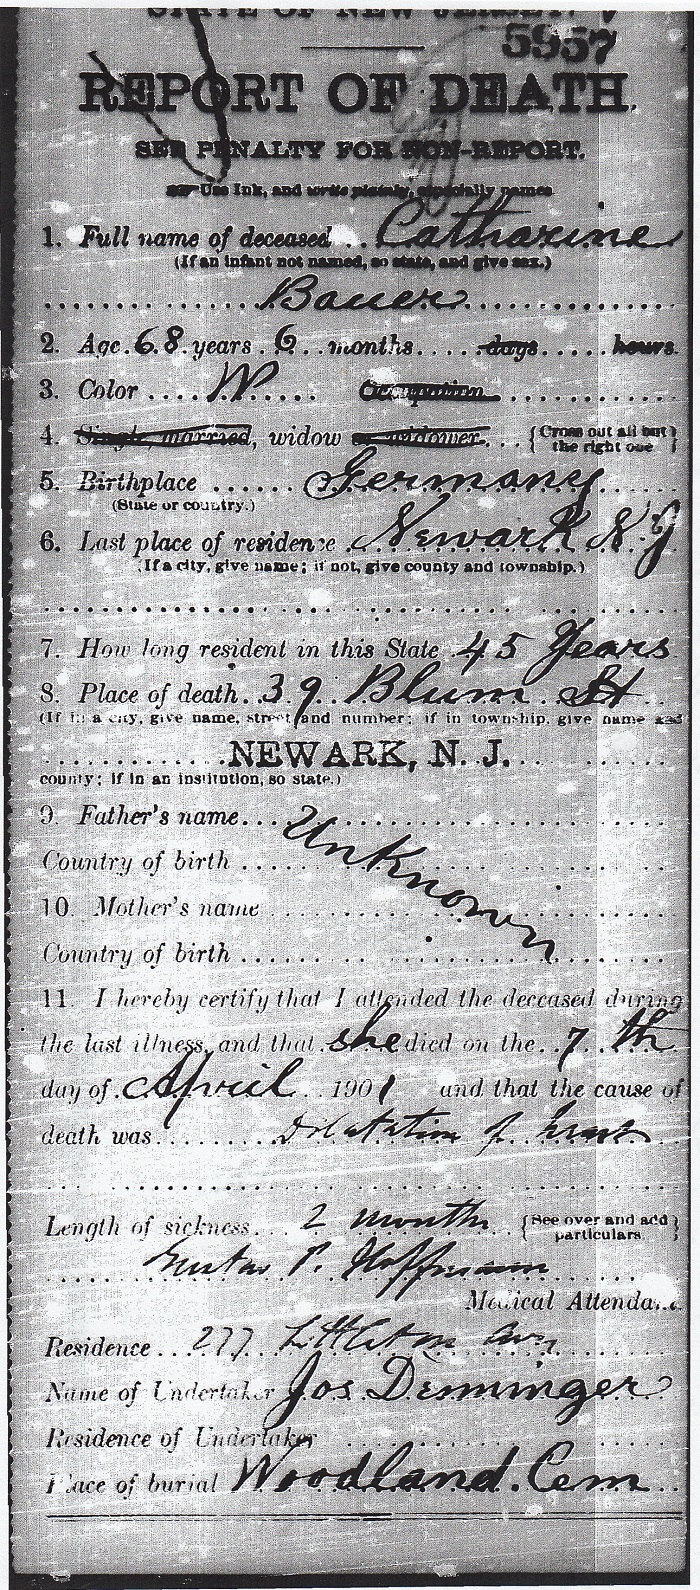 STATE OF NEW JERSEY.
5957
REPORT OF DEATH.
SEE PENALTY FOR NON-REPORT.
Use Ink, and write plainly, especially names
1. Full name of deceased .. Catharine
(If an infant not named, so state, and give sex.)
Bauer
2. Age. 68. years. 6.. months..... days..... hours.
3. Color .... W .... Occupation
4. Single, married, widow or widower... {Cross out all but the right one}
5. Birthplace ...... Germany
(State or country.)
6. Last place of residence . Newark N.J
(If a city, give name; if not, give county and township.)
7. How long resident in this State 45 Years
8. Place of death.. 39 Blum St
(If in a city, give name, street and number; if in township, give name and
NEWARK, N. J.
county; if in an institution, so state.)
9. Father's name.... Unknown
Country of birth
10. Mother's name
Country of birth
11. I hereby certify that I attended the deceased during
the last illness, and that she died on the 7 th
day of April 1901 and that the cause of
death was Dilatation of heart
Length of sickness... 2 month {See over and add particulars}
Gustav P. Hoffmann
Medical Attendant.
Residence... 277 Littleton Ave
Name of Undertaker Jos Denninger
Residence of Undertaker
Place of burial Woodland. Cem